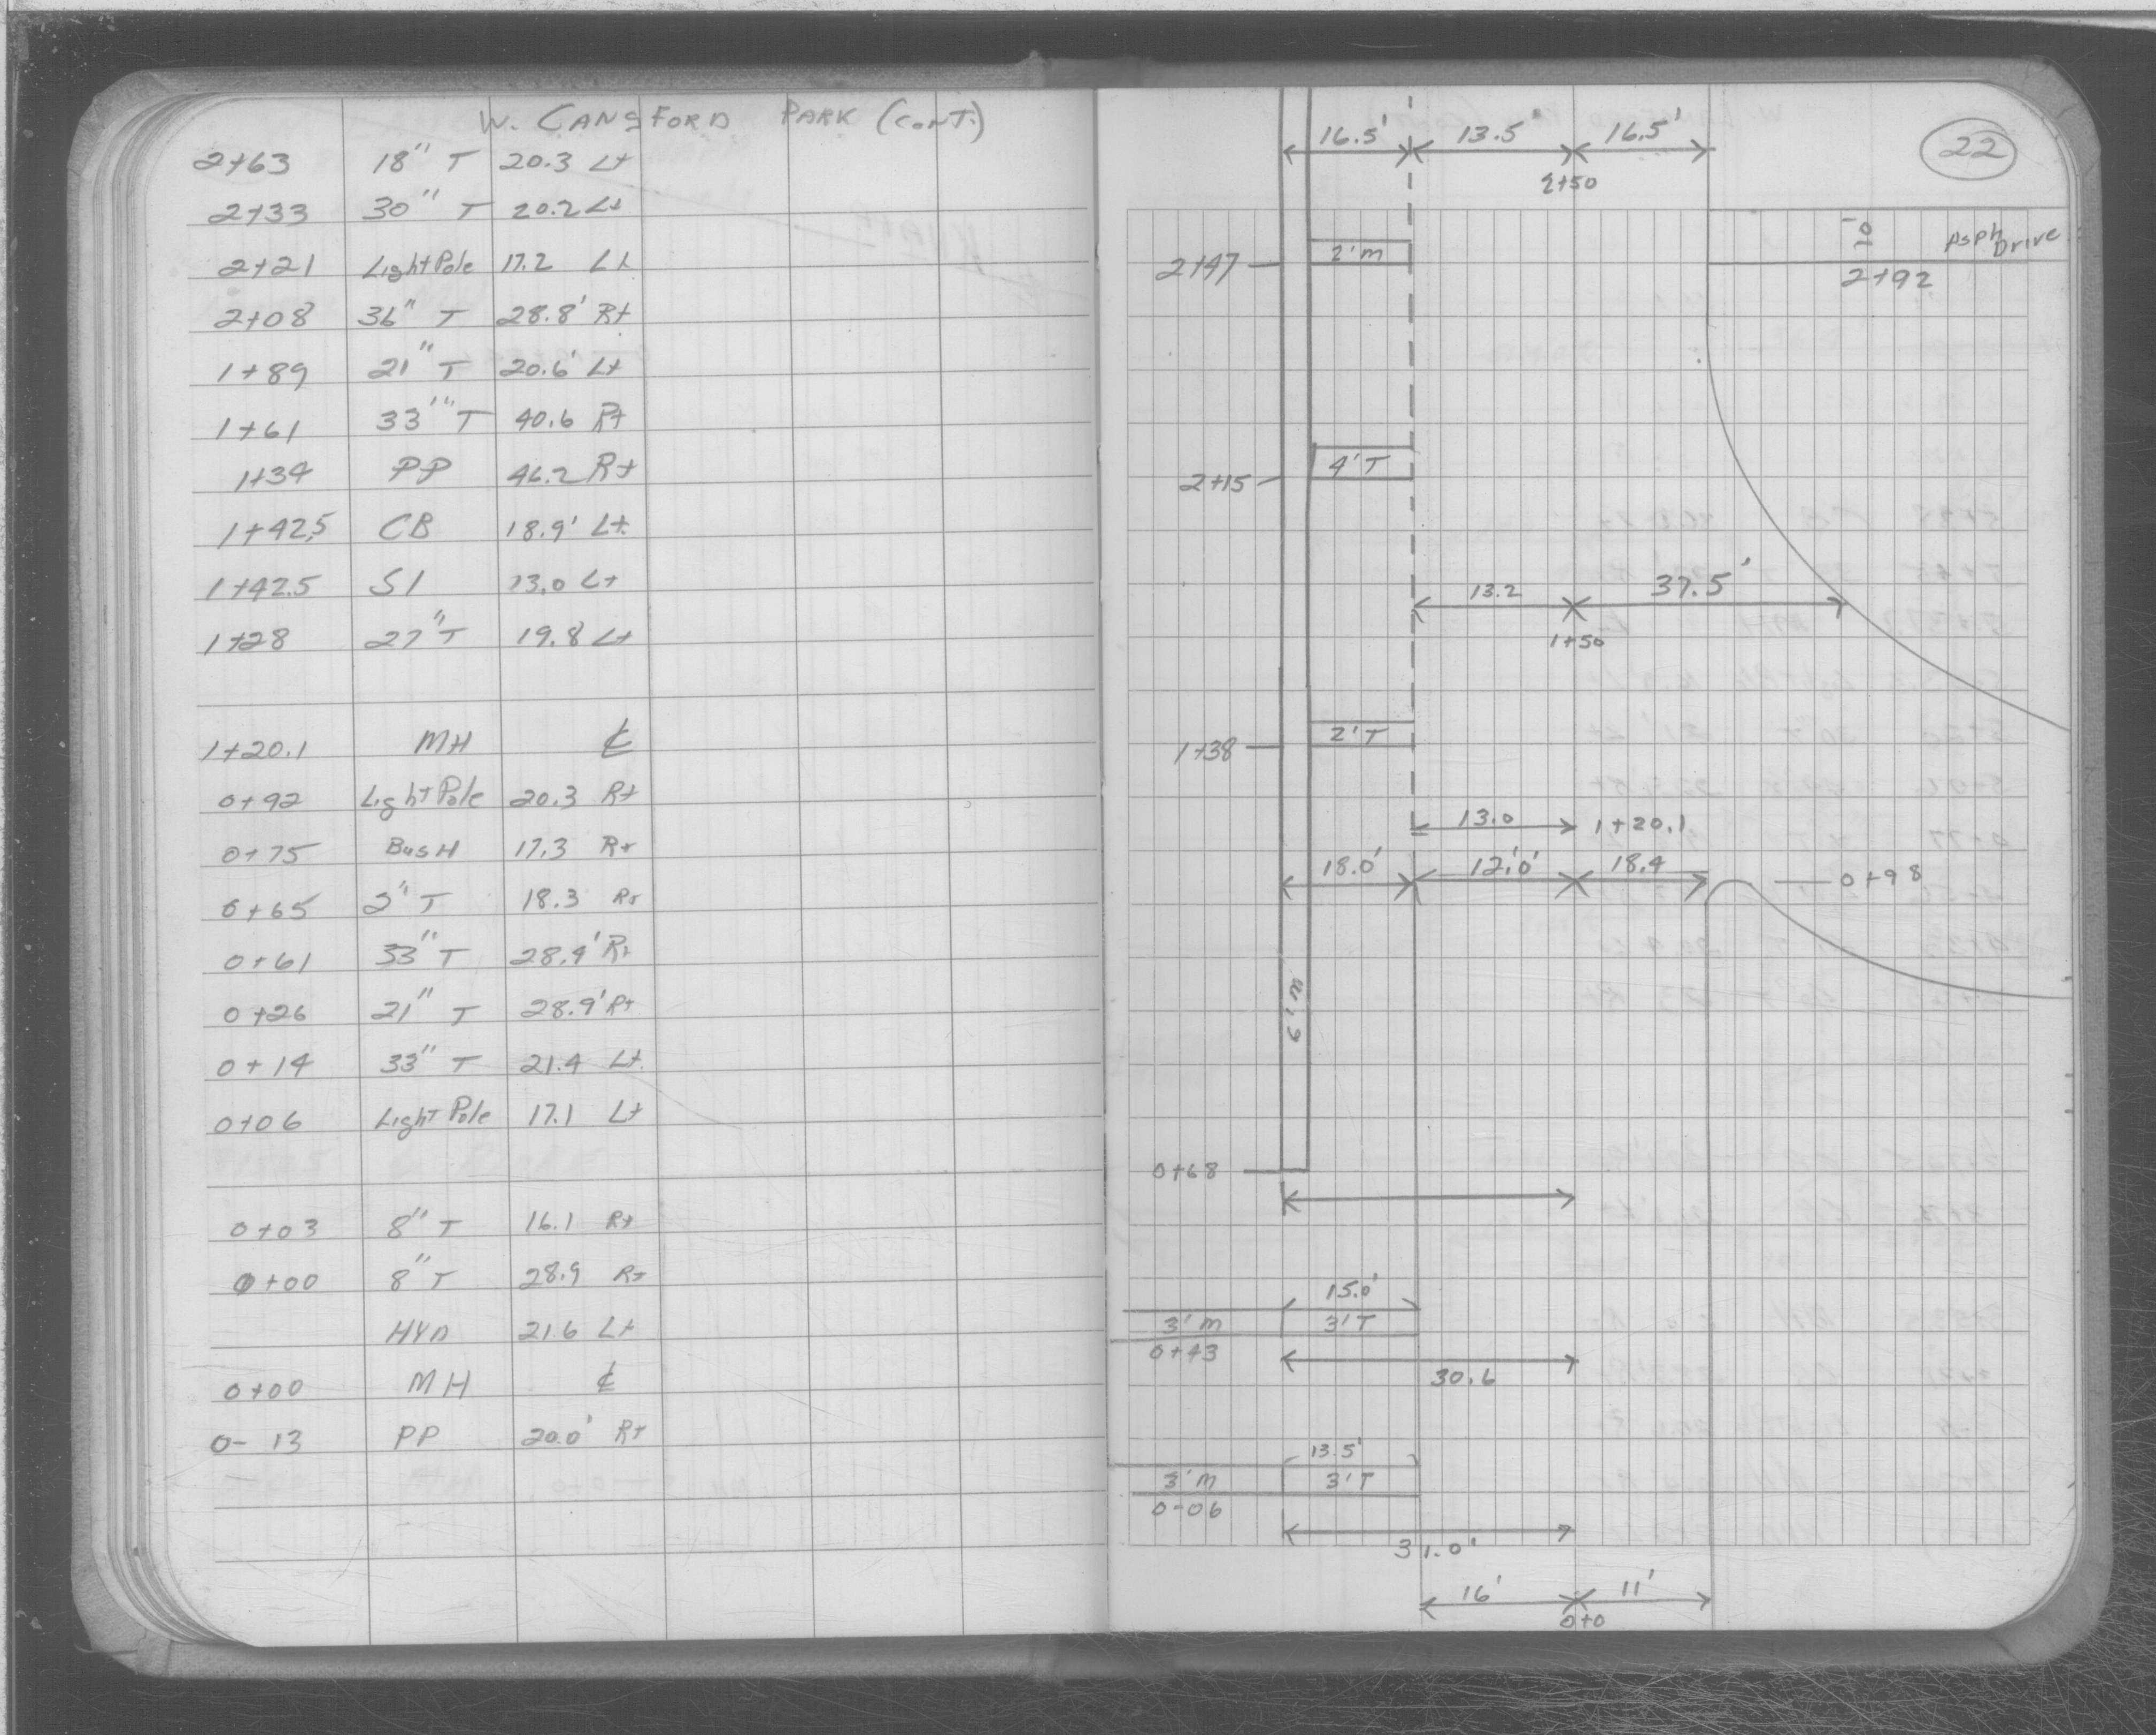 W. CANGFORD PARK (CONT.)
2+63 18" T 20.3 Lt
2+33 30" T 20.2 Lt
2+21 Light Pole 17.2 Lt
2+08 36" T 28.8' Rt
1+89 21" T 20.6' Lt
1+61 33"" T 40.6 Rt
1+34 PP 46.2 Rt
1+42.5 CB 18.9' Lt.
1+42.5 SI 13.0 Lt
1+28 27" T 19.8 Lt
1+20.1 MH ℄
0+92 Light Pole 20.3 Rt
0+75 BusH 17.3 Rt
0+65 2" T 18.3 Rt
0+61 33" T 28.4' Rt
0+26 21" T 28.9' Rt
0+14 33" T 21.4 Lt.
0+06 Light Pole 17.1 Lt
0+03 8" T 16.1 Rt
0+00 8" T 28.9 Rt
HYD 21.6 Lt
0+00 MH ℄
0-13 PP 20.0' Rt
22
16.5' 13.5' 16.5'
2+50
10' Asph Drive
2+47 2'M
2+92
2+15 4'T
13.2 37.5'
1+50
1+38 2'T
13.0 1+20.1
18.0' 12.0' 18.4 0+98
6'M
0+68
15.0'
3'M 3'T
0+43
30.6
13.5'
3'M 3'T
0-06
31.0'
16' 11'
0+0